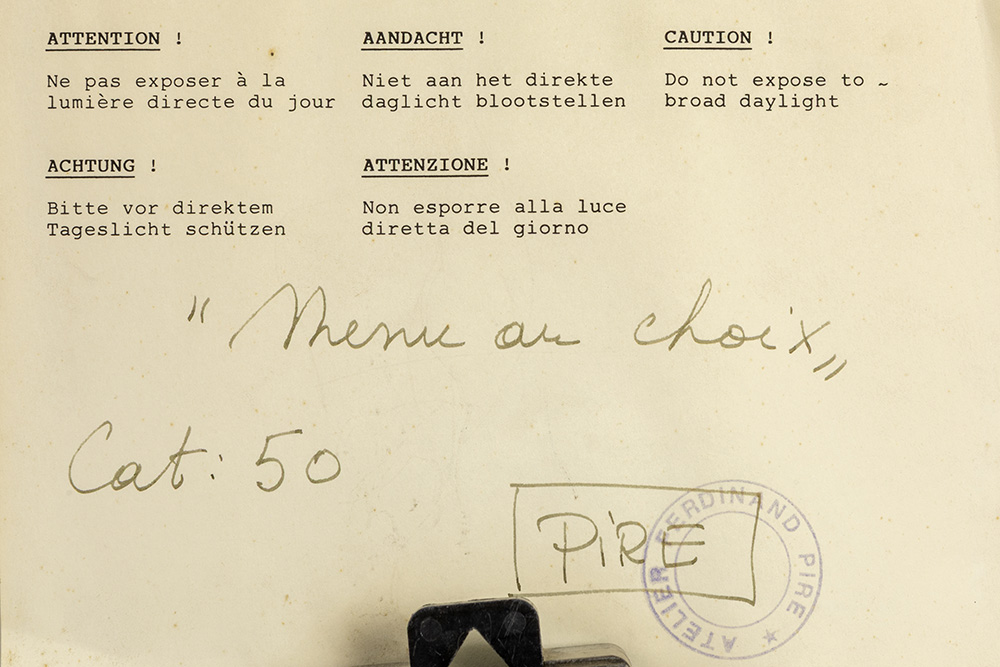 ATTENTION !
Ne pas exposer à la
lumière directe du jour
AANDACHT !
Niet aan het direkte
daglicht blootstellen
CAUTION !
Do not expose to ~
broad daylight
ACHTUNG !
Bitte vor direktem
Tageslicht schützen
ATTENZIONE !
Non esporre alla luce
diretta del giorno
" Menu au choix „
Cat: 50
PiRE
ATELIER FERDINAND PIRE ★